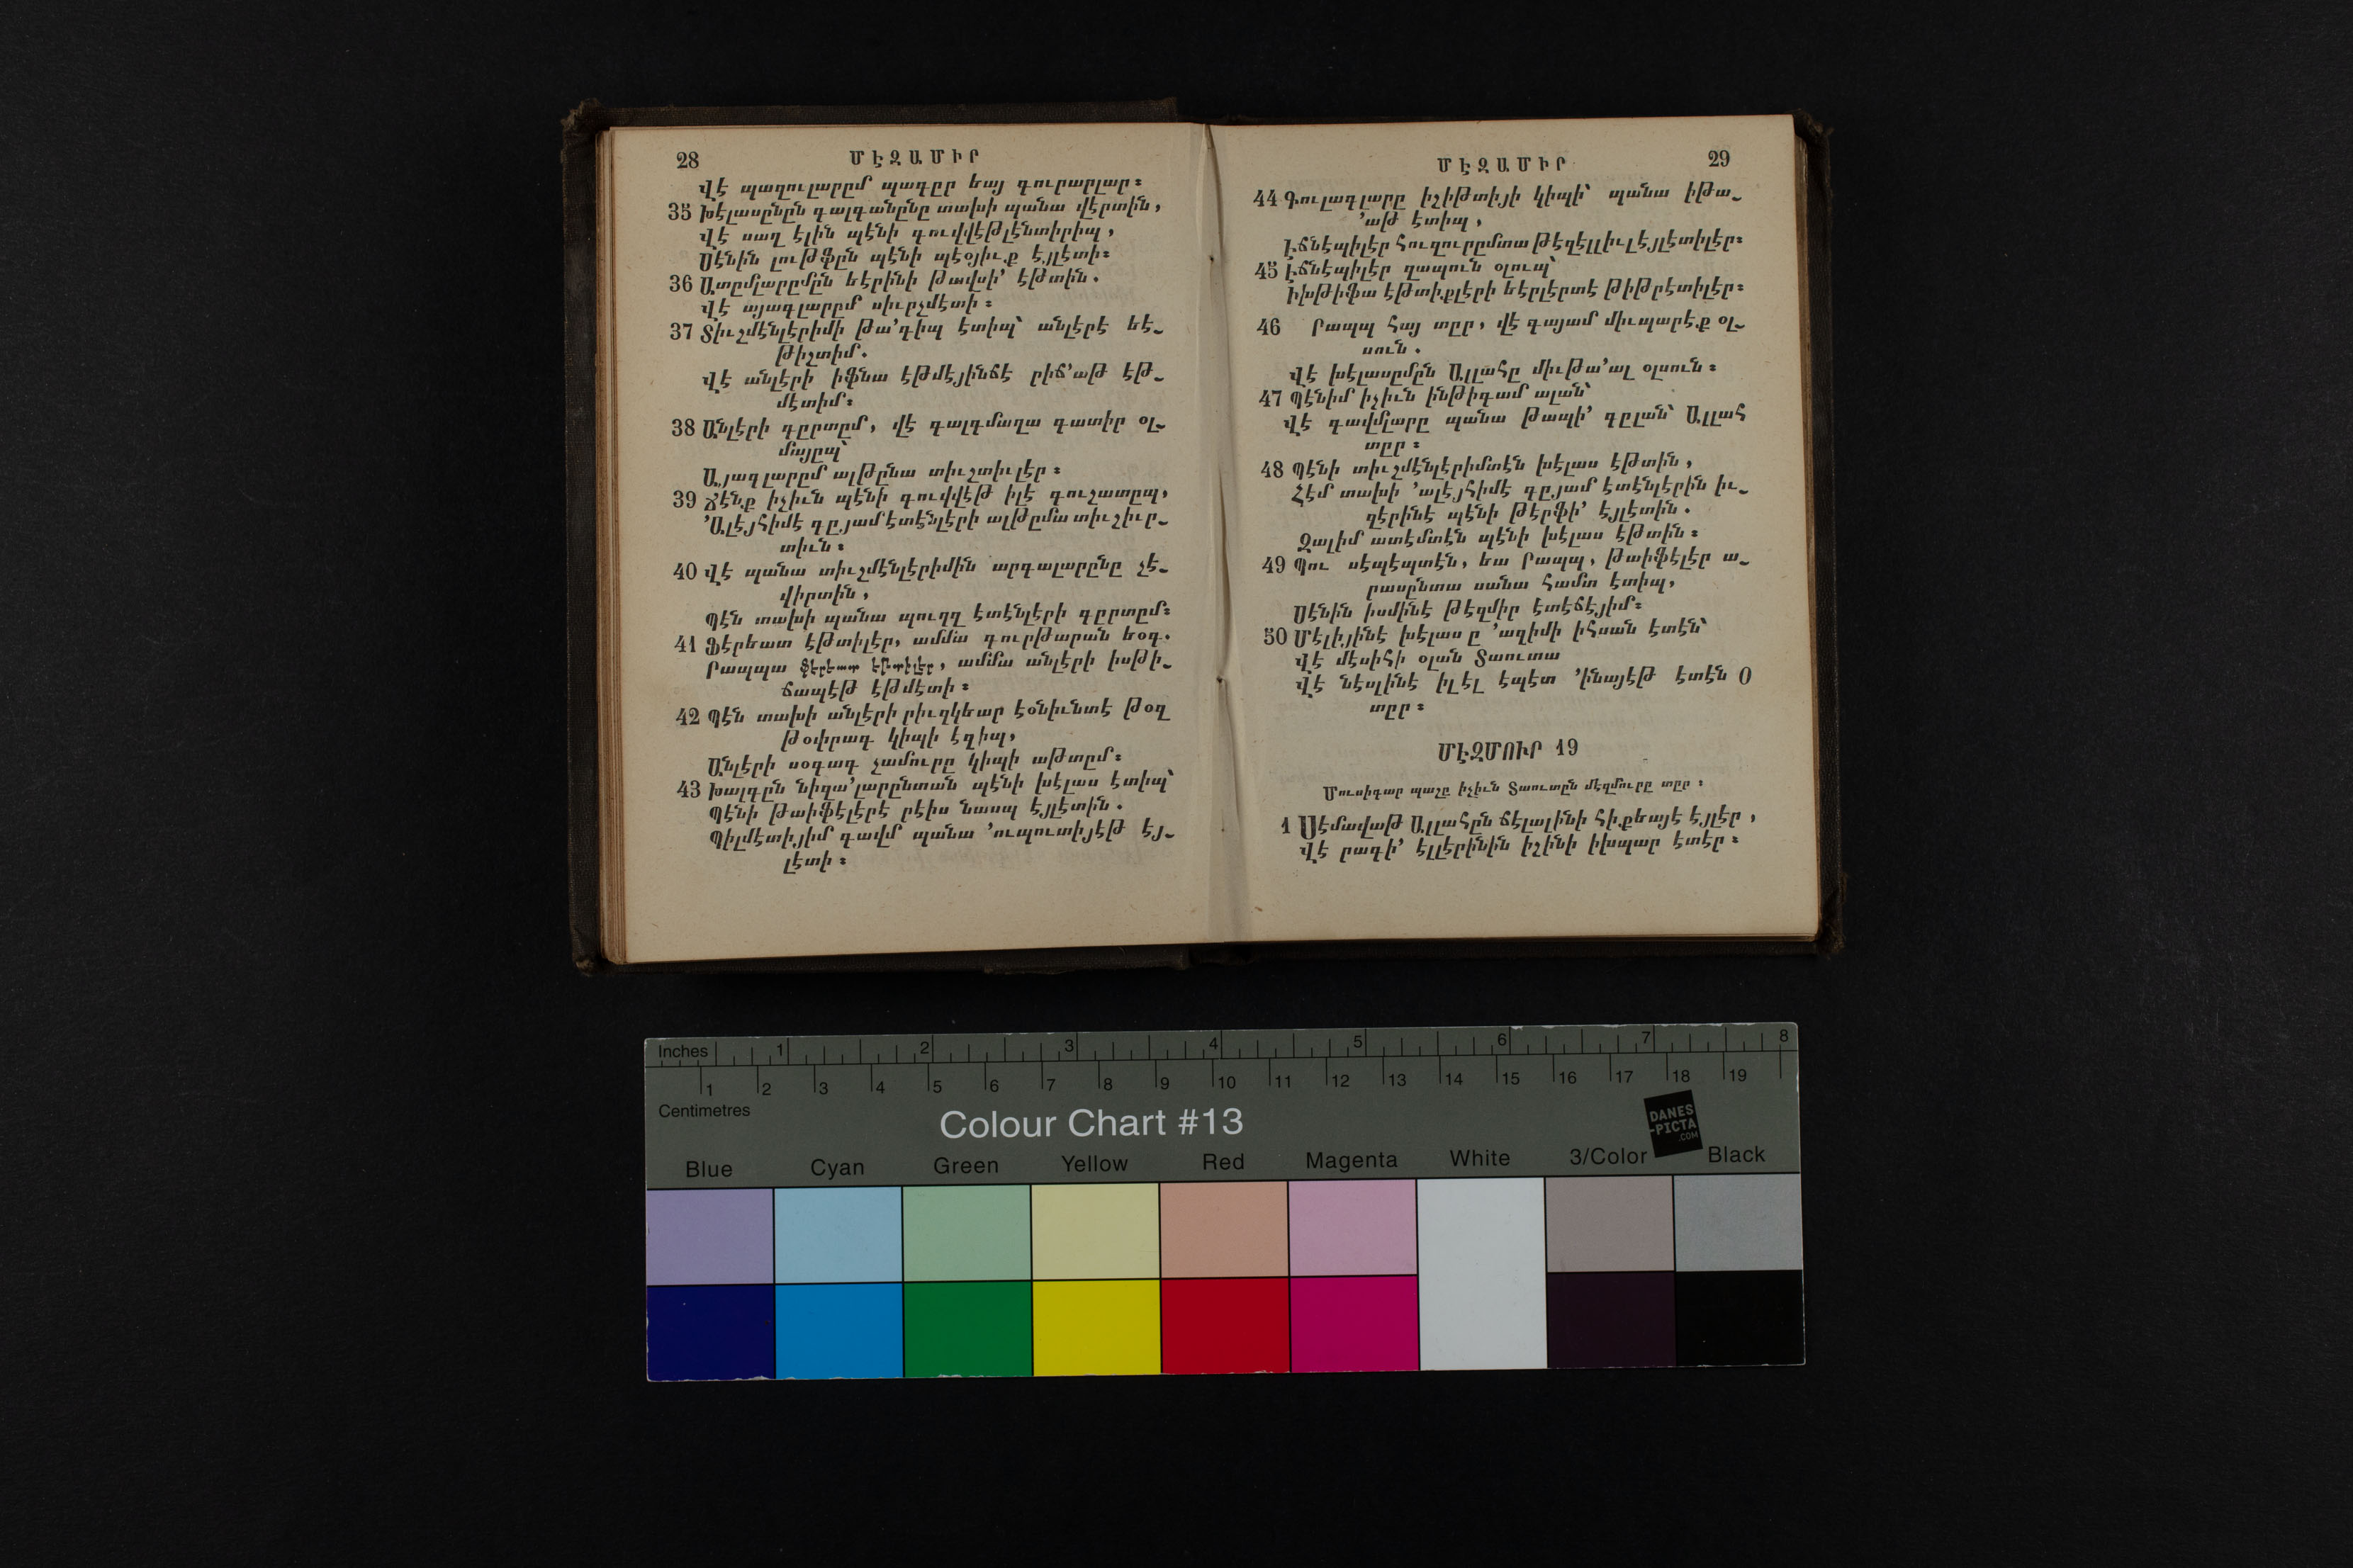 28 ՄԷԶԱՄԻՐ
Վէ պազուլարըմ պագըր եայ գուրարլար։
35 Խէլասընըն գալգանընը տախի պանա վէրտին,
Վէ սաղ էլին պէնի գուվվէթլէնտիրիպ,
Սէնին լութֆըն պէնի պէօյիւք էյլէտի։
36 Ատըմլարըմըն եէրինի թավսի՚ էթտին.
Վէ այագլարըմ սիւրչմէտի։
37 Տիւշմէնլէրիմի թա՚գիպ էտիպ՝ անլէրէ եէ֊
թիշտիմ.
Վէ անլէրի իֆնա էթմէյինճէ րիճ՚աթ էթ֊
մէտիմ։
38 Անլէրի գըրտըմ, վէ գալգմաղա գատիր օլ֊
մայըպ՝
Այագլարըմ ալթընա տիւշտիւլէր։
39 Ճէնք իչիւն պէնի գուվվէթ իլէ գուշատըպ,
՚Ալէյհիմէ գըյամ էտէնլէրի ալթըմա տիւշիւր֊
տիւն։
40 Վէ պանա տիւշմէնլէրիմին արգալարընը չէ֊
վիրտին,
Պէն տախի պանա պուղզ էտէնլէրի գըրտըմ։
41 Ֆէրեատ էթտիլէր, ամմա գուրթարան եօգ.
Րապպա ֆէրեատ էթտիլէր, ամմա անլէրի իսթի֊
ճապէթ էթմէտի։
42 Պէն տախի անլէրի րիւզկեար էօնիւնտէ թօզ
թօփրագ կիպի էզիպ,
Անլէրի սօգագ չամուրը կիպի աթտըմ։
43 Խալգըն նիզա՚լարընտան պէնի խէլաս էտիպ՝
Պէնի թաիֆէլէրէ րէիս նասպ էյլէտին.
Պիլմէտիյիմ գավմ պանա ՚ուպուտիյէթ էյ֊
լէտի։
ՄԷԶԱՄԻՐ 29
44 Գուլագլարը իշիթտիյի կիպի՝ պանա իթա֊
՚աթ էտիպ,
Էճնէպիլէր հուզուրըմտա թէզէլլիւլ էյլէտիլէր։
45 Էճնէպիլէր զապուն օլուպ՝
Իխթիֆա էթտիքլէրի եէրլէրտէ թիթրէտիլէր։
46 Րապպ հայ տըր, վէ գայամ միւպարէք օլ֊
սուն.
Վէ խէլասըմըն Ալլահը միւթա՚ալ օլսուն։
47 Պէնիմ իչիւն ինթիգամ ալան՝
Վէ գավմլարը պանա թապի՚ գըլան՝ Ալլահ
տըր։
48 Պէնի տիւշմէնլէրիմտէն խէլաս էթտին,
Հէմ տախի ՚ալէյհիմէ գըյամ էտէնլէրին իւ֊
զէրինէ պէնի թէրֆի՚ էյլէտին.
Զալիմ ատէմտէն պէնի խէլաս էթտին։
49 Պու սէպէպտէն, եա Րապպ, թաիֆէլէր ա֊
րասընտա սանա համտ էտիպ,
Սէնին իսմինէ թէզմիր էտէճէյիմ։
50 Մէլիյինէ խէլասը ՚ազիմի իհսան էտէն՝
Վէ մէսիհի օլան Տաուտա
Վէ նէսլինէ իլէլ էպէտ ՚ինայէթ էտէն Օ
տըր։
ՄԷԶՄՈՒՐ 19
Մուսիգար պաշը իչիւն Տաուտըն մէզմուրը տըր։
1 Սէմավաթ Ալլահըն ճէլալինի հիքեայէ էյլէր,
Վէ րագի՚ էլլէրինին իշինի իխպար էտէր։
Inches 1 2 3 4 5 6 7 8
1 2 3 4 5 6 7 8 9 10 11 12 13 14 15 16 17 18 19
Centimetres
Colour Chart #13
DANES
-PICTA
.COM
Blue Cyan Green Yellow Red Magenta White 3/Color Black